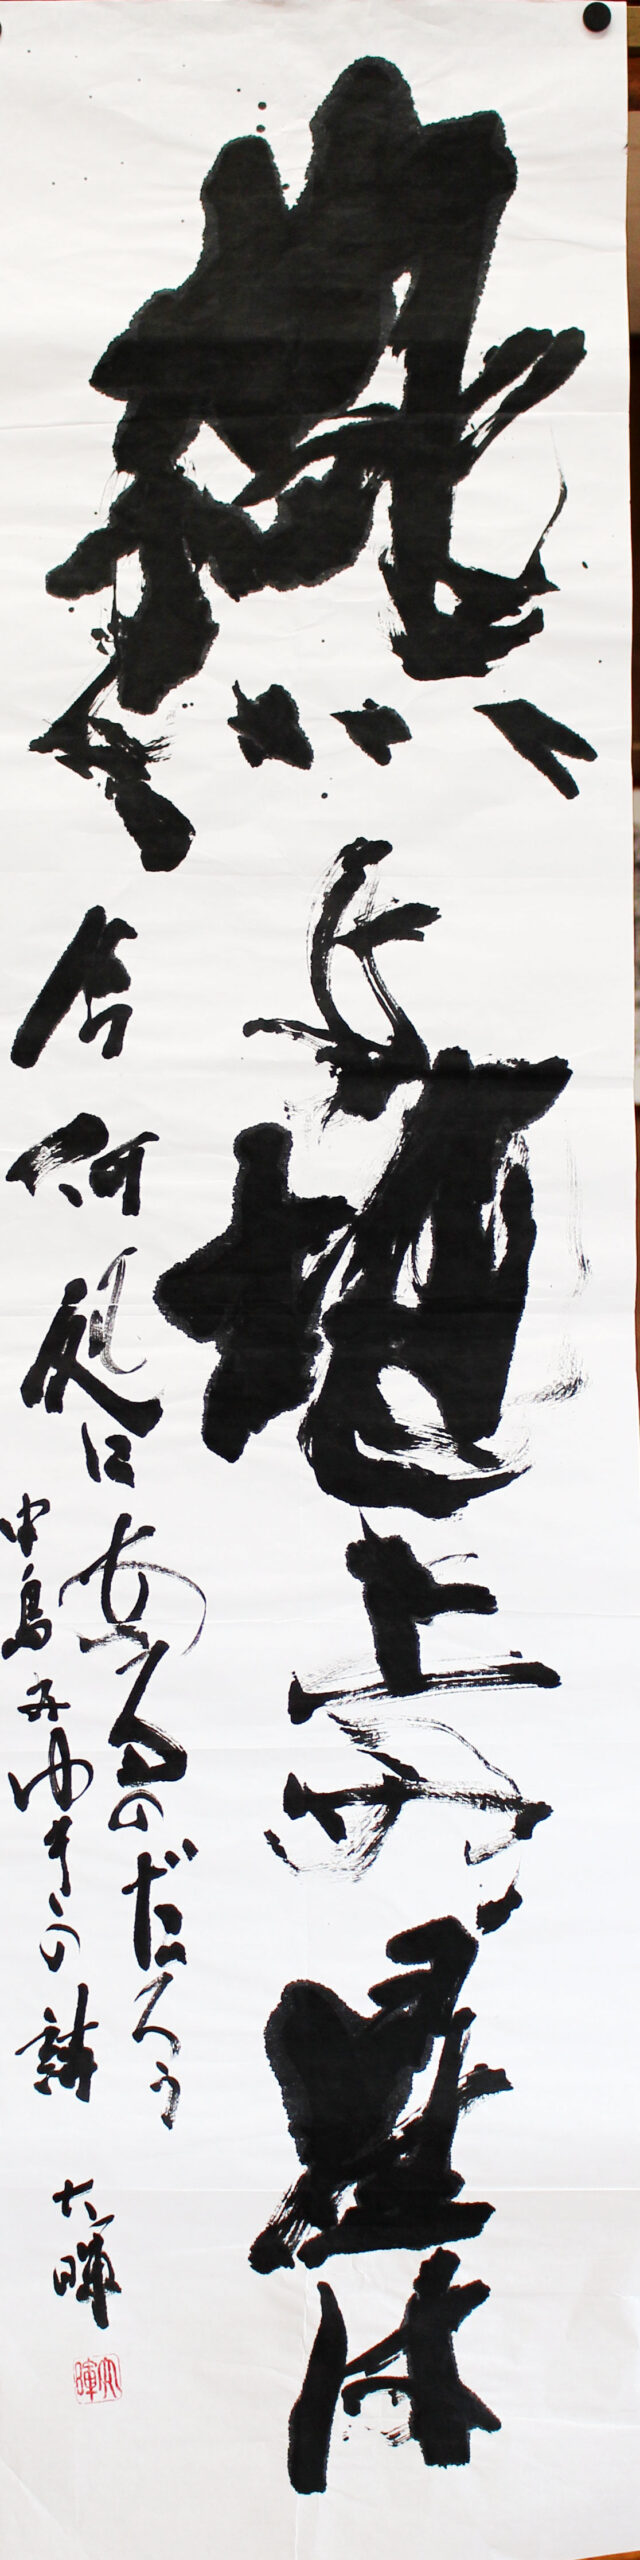 燕よ地上の星は
今何処にあるのだろう
中島みゆきの詩 大暉
大暉